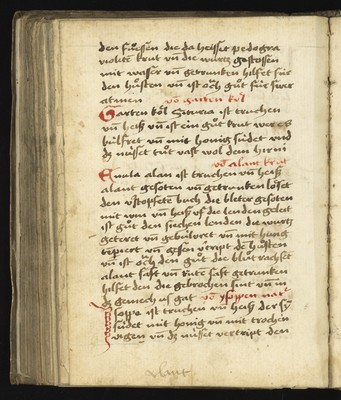 den fuessen die da heisset pedogra
violite krut vn die wurtz gestossen
mit wasser vn getruncken hilfet für
den husten vn ist och gut für swer
atmen võ garten köl
Garten köl Satureia ist truchen
vn heiss vn ist ein gut krut wer es
bulfret vn mit honig südet vnd
dz nüsset tut vast wol dem hertzn
võ alant krut
Enula alan ist truchen vn heiss
alant gesoten vn getrunken löset
den verstopfete buch die bleter gesoten
mit win vn heiss vf die lenden geleit
ist gut den siechen lenden die wurtz
geteret vn gebulfret vn mit hung
temperiert vn gessen vertript dē husten
vn ist och den gut die blut rachsset
alant saft vn rute saft getrunken
hilfet den die gebrochen sint vn in
dz gemech us gat võ ysoppen
Isoppe ist truchen vn heiss der sÿ
südet mit honig vn mit trochen
vigen vn dz nüsset vertript den
alant